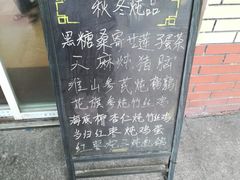 秋冬炖品
黑糖桑寄生莲子蛋茶
天麻炖猪脑
淮山参芪炖鹌鹑
花旗参炖竹丝鸡
海底椰杏仁炖竹丝鸡
当归红枣炖鸡蛋
红枣 炖乌鸡